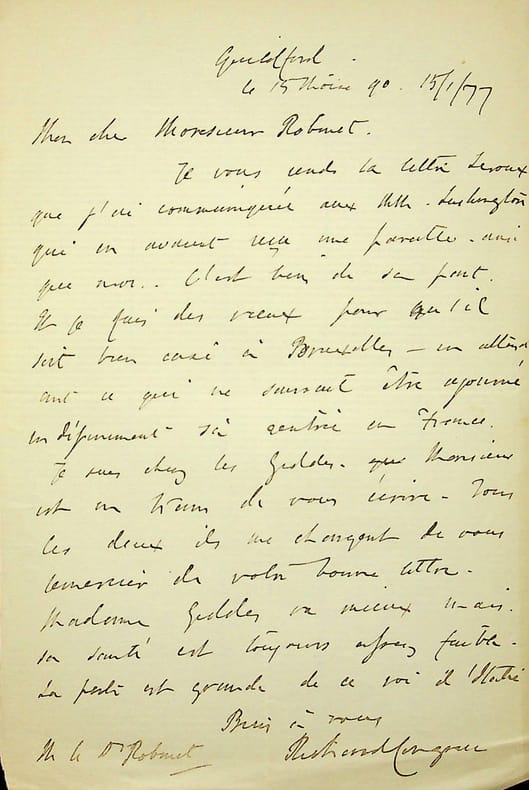 Guildford.
le 15 Moïse 90. 15/1/77
Mon cher Monsieur Robinet.
Je vous rends la lettre Leroux
que j'ai communiquée aux MM. Lushington
qui en avaient reçu une pareille. ainsi
que moi.. C'est bien de sa part.
Et je fais des vœux pour qu'il
soit bien casé à Bruxelles – en attend
ant ce qui ne saurait être ajourné
indéfiniment sa rentrée en France.
Je suis chez les Geddes. que Monsieur
est en train de vous écrire – Tous
les deux ils me chargent de vous
remercier de votre bonne lettre –
Madame Geddes va mieux mais.
sa santé est toujours assez faible –
La perte est grande de ce roi d'Italie
Bien à vous
Richard Congreve
M le Dr Robinet